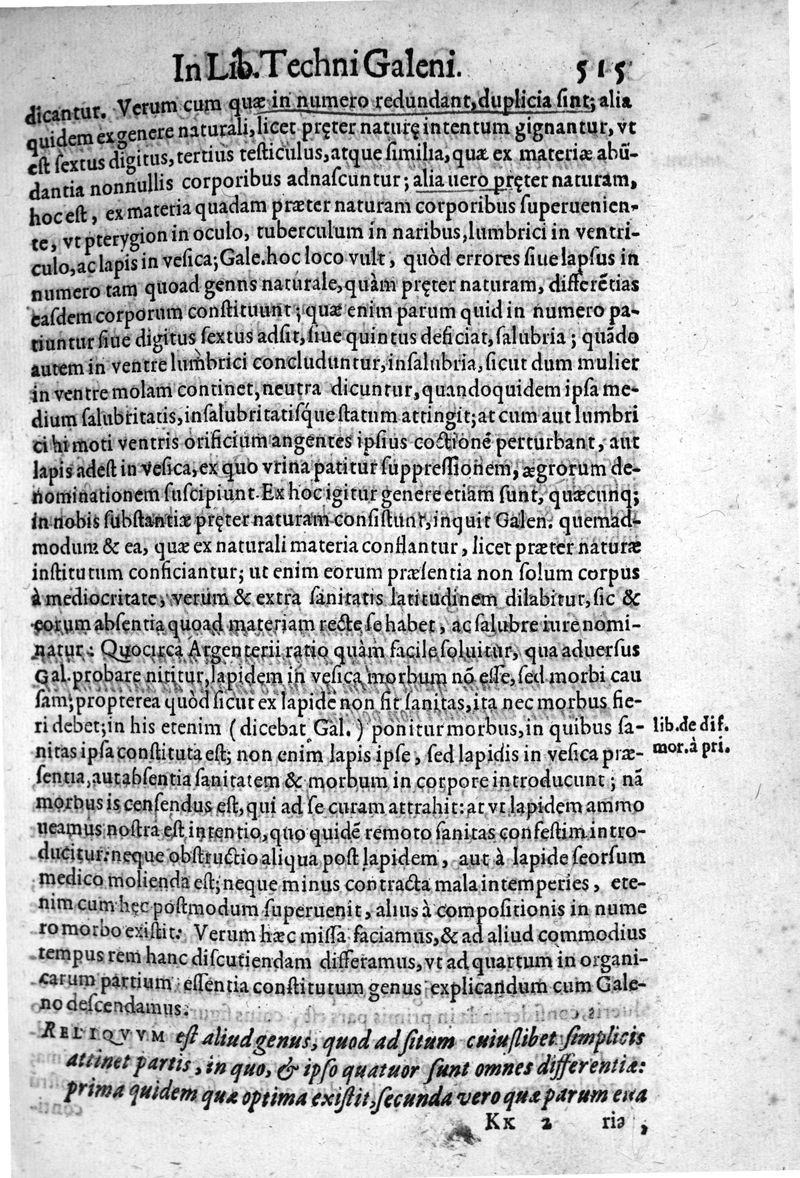 In Lib. Techni Galeni. 515
dicantur. Verum cum quæ in numero redundant, duplicia sint; alia
quidem ex genere naturali, licet pręter naturę intentum gignantur, vt
est sextus digitus, tertius testiculus, atque similia, quæ ex materiæ abū-
dantia nonnullis corporibus adnascuntur; alia uero pręter naturam,
hoc est, ex materia quadam præter naturam corporibus superuenien-
te, vt pterygion in oculo, tuberculum in naribus, lumbrici in ventri-
culo, ac lapis in vesica; Gale. hoc loco vult, quòd errores siue lapsus in
numero tam quoad genus naturale, quàm pręter naturam, differētias
easdem corporum constituunt; quæ enim parum quid in numero pa-
tiuntur siue digitus sextus adsit, siue quintus deficiat, salubria; quādo
autem in ventre lumbrici concluduntur, insalubria, sicut dum mulier
in ventre molam continet, neutra dicuntur, quandoquidem ipsa me-
dium salubritatis, insalubritatisq́ue statum attingit; at cum aut lumbri
ci hi moti ventris orificium angentes ipsius coctionē perturbant, aut
lapis adest in vesica, ex quo vrina patitur suppressionem, ægrorum de-
nominationem suscipiunt. Ex hoc igitur genere etiam sunt, quæcunq;
in nobis substantiæ pręter naturam consistunt, inquit Galen. quemad-
modum & ea, quæ ex naturali materia conflantur, licet præter naturæ
institutum conficiantur; ut enim eorum præsentia non solum corpus
à mediocritate, verùm & extra sanitatis latitudinem dilabitur, sic &
eorum absentia quoad materiam recte se habet, ac salubre iure nomi-
natur: Quocirca Argenterii ratio quàm facile soluitur, qua aduersus
Gal. probare nititur, lapidem in vesica morbum nō esse, sed morbi cau
sam; propterea quòd sicut ex lapide non fit sanitas, ita nec morbus fie-
ri debet; in his etenim (dicebat Gal.) ponitur morbus, in quibus sa-
lib. de dif.
mor. à pri.
nitas ipsa constituta est; non enim lapis ipse, sed lapidis in vesica præ-
sentia, aut absentia sanitatem & morbum in corpore introducunt; nā
morbus is censendus est, qui ad se curam attrahit: at vt lapidem ammo
ueamus nostra est intentio, quo quidē remoto sanitas confestim intro-
ducitur: neque obstructio aliqua post lapidem, aut à lapide seorsum
medico molienda est; neque minus contracta mala intemperies, ete-
nim cum hęc postmodum superuenit, alius à compositionis in nume
ro morbo existit. Verum hæc missa faciamus, & ad aliud commodius
tempus rem hanc discutiendam differamus, vt ad quartum in organi-
carum partium essentia constitutum genus explicandum cum Gale-
no descendamus.
RELIQVVM est aliud genus, quod ad situm cuiuslibet simplicis
attinet partis, in quo, & ipso quatuor sunt omnes differentiæ:
prima quidem quæ optima existit, secunda vero quæ parum eua
Kk 2 ria,